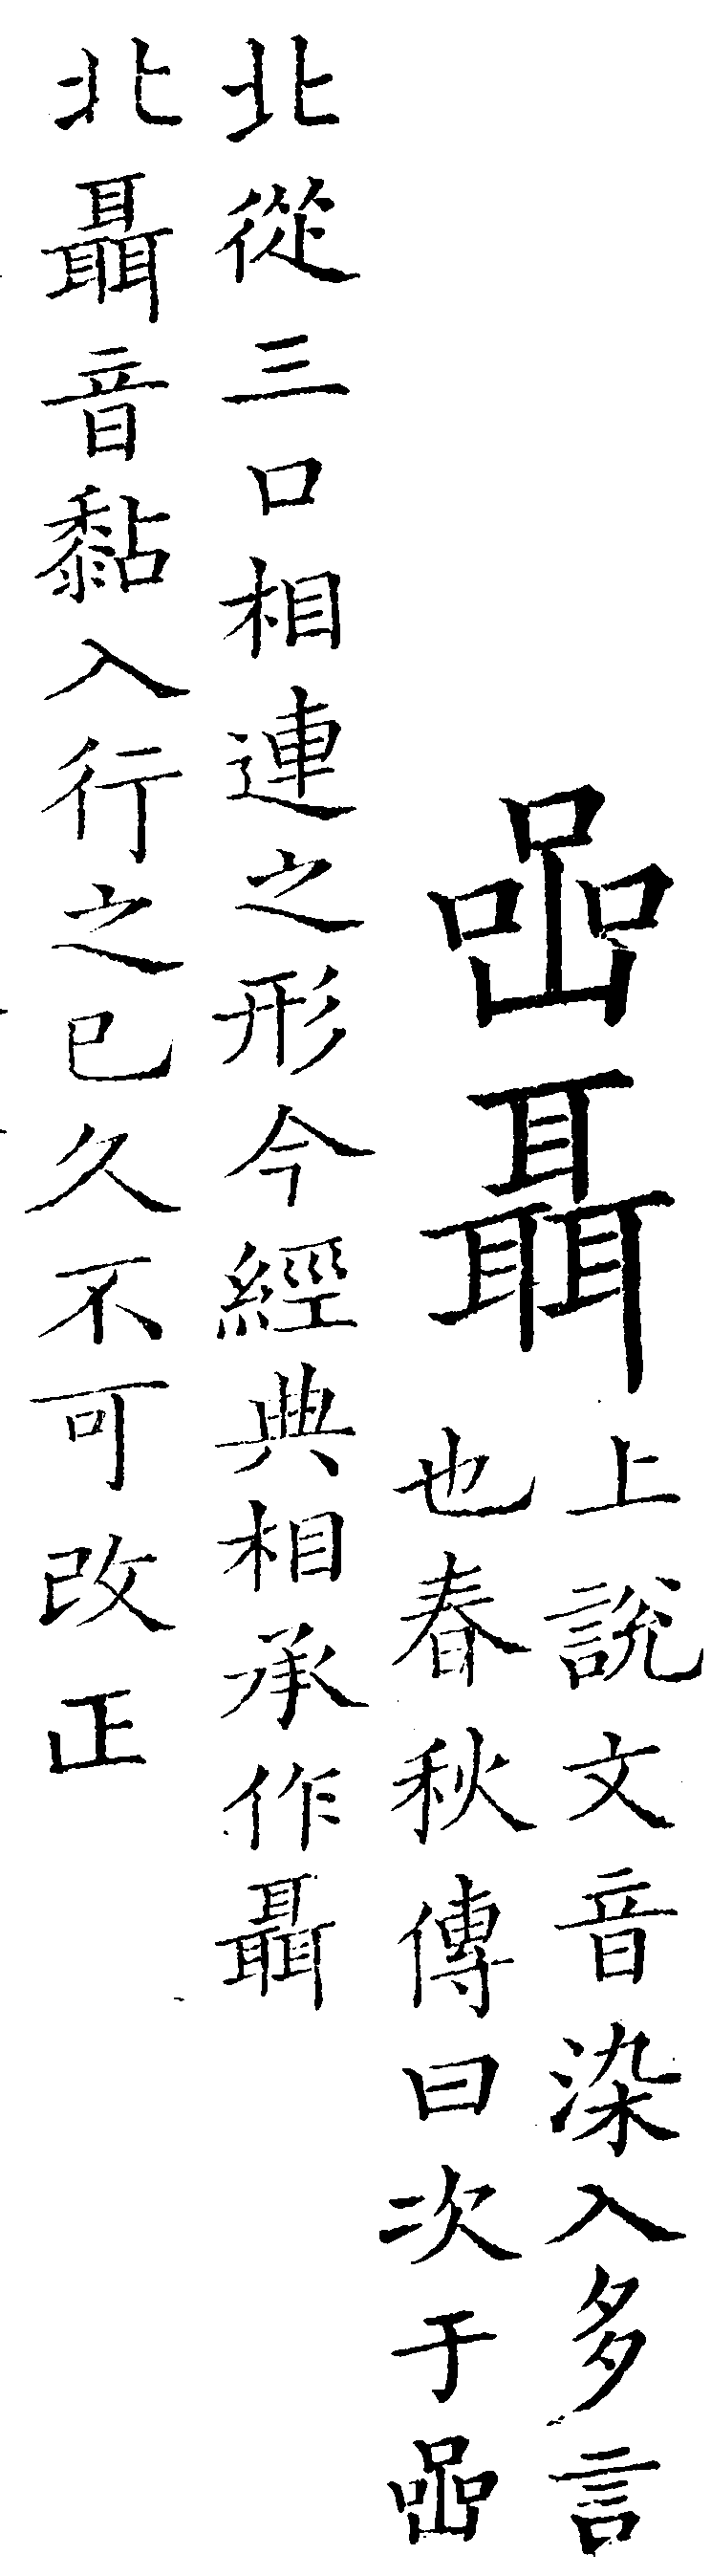 喦聶
上說文音染入多言
也春秋傳曰次于喦
北從三口相連之形今經典相承作聶
北聶音黏入行之已久不可改正